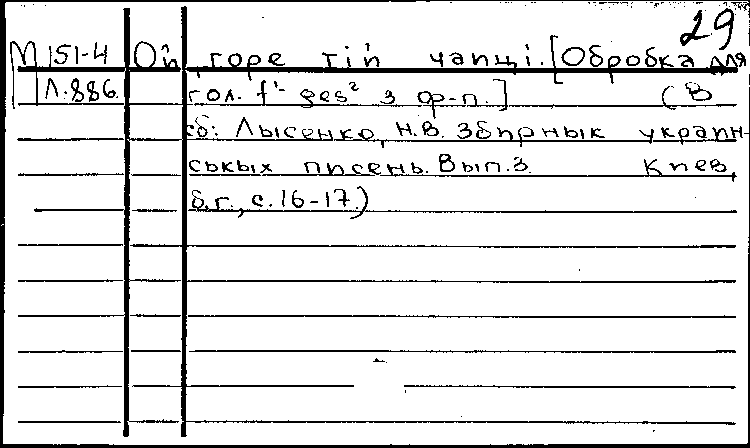 29
М 151-4 Ой, горе тій чапці. [Обробка для
Л.886. гол. f¹- ges² з ф-п.] (В
сб: Лысенко, Н.В. Збирнык украин-
ськых писень. Вып.3. Киев,
б.г., с.16-17.)